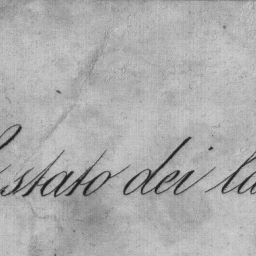 stato dei la